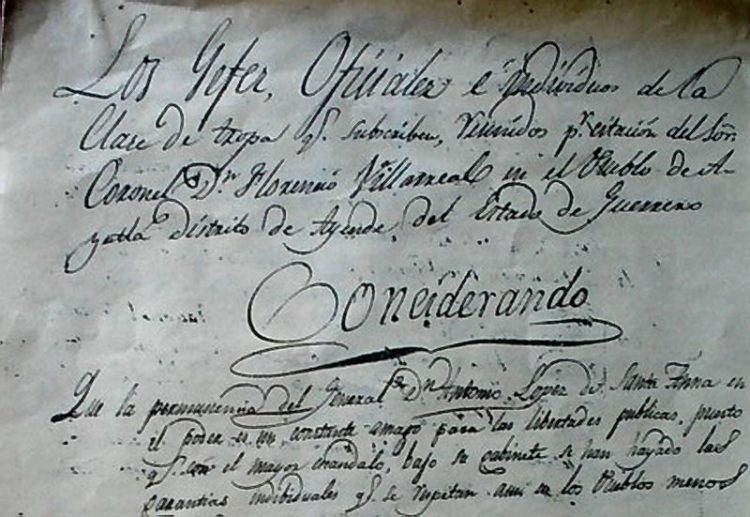 Los Gefes, Oficiales é individuos de la
Clase de tropa q.e subscriben, reunidos p.r citacion del Sor.
Coronel D.n Florencio Villarreal en el Pueblo de A-
yutla distrito de Ayende, del Estado de Guerrero
Conciderando
Que la permanencia del General D.n Antonio Lopez de Santa Anna en
el poder es un constante amago para las libertades publicas, puesto
q.e con el mayor escandalo, bajo su gabinete se han hayado las
garantias individuales q.e se respetan aun en los Pueblos menos